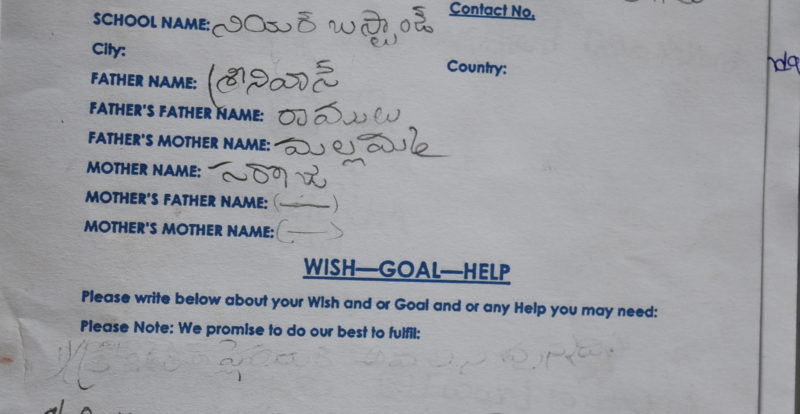 SCHOOL NAME: నియర్ బస్టాండ్ Contact No.
City:
FATHER NAME: శ్రీనివాస్ Country:
FATHER'S FATHER NAME: రాములు
FATHER'S MOTHER NAME: మల్లమ్మ
MOTHER NAME: సరోజ
MOTHER'S FATHER NAME: (—)
MOTHER'S MOTHER NAME: (—)
WISH—GOAL—HELP
Please write below about your Wish and or Goal and or any Help you may need:
Please Note: We promise to do our best to fulfil: